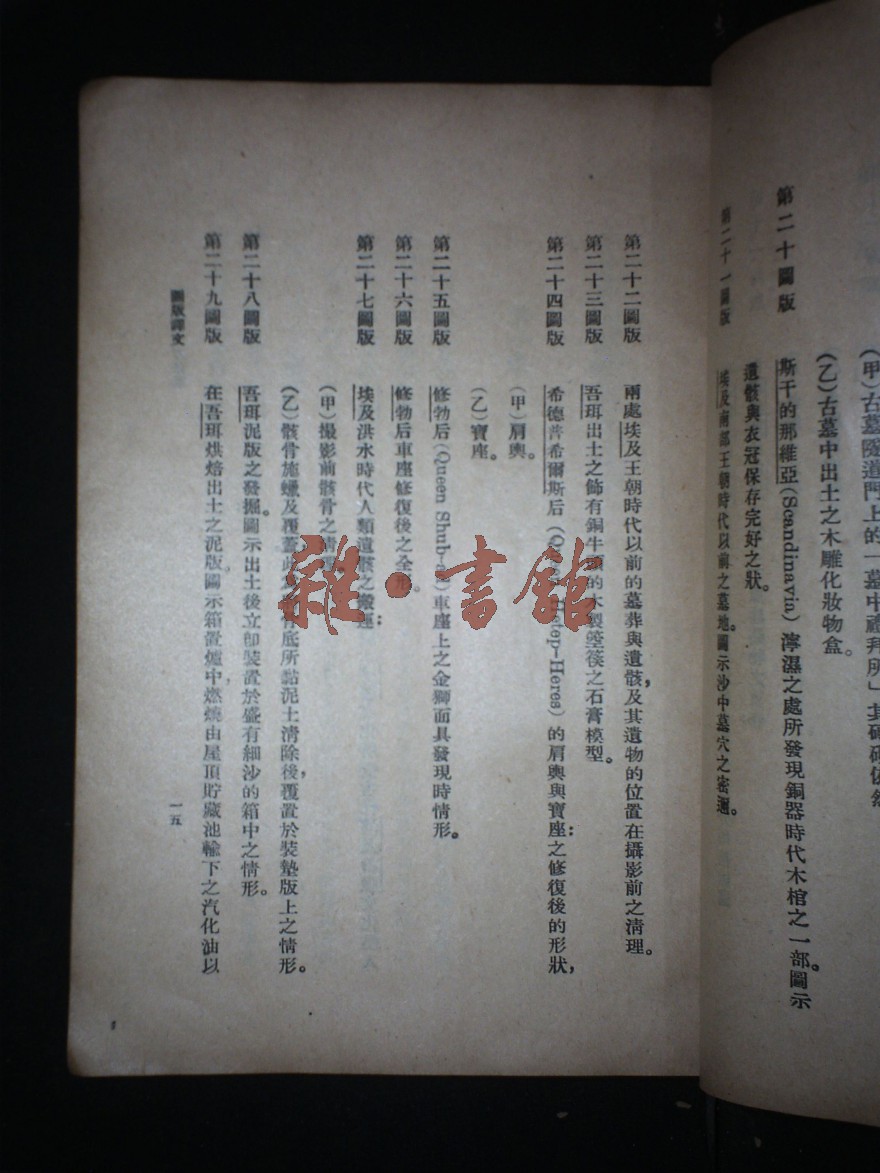 (甲)古墓隧道門上的「墓中禮拜所」其
(乙)古墓中出土之木雕化妝物盒。
第二十圖版 斯干的那維亞(Scandinavia)濘濕之處所發現銅器時代木棺之一部。圖示
遺骸與衣冠保存完好之狀。
第二十一圖版 埃及南部王朝時代以前之墓地。圖示沙中墓穴之密邇。
第二十二圖版 兩處埃及王朝時代以前的墓葬與遺骸,及其遺物的位置在攝影前之清理。
第二十三圖版 吾珥出土之飾有銅牛頭的木製箜篌之石膏模型。
第二十四圖版 希德普希爾斯后(Hetep-Heres)的肩輿與寶座之修復後的形狀,:
(甲)肩輿。
(乙)寶座。
第二十五圖版 修勃后(Queen Shub-)車座上之金獅面具發現時情形。
第二十六圖版 修勃后車座修復後之全形。
第二十七圖版 埃及洪水時代人類遺骸之搬運:
(甲)撮影前骸骨之情
(乙)骸骨施蠟及覆蓋底所黏泥土清除後,覆置於裝墊版上之情形。
第二十八圖版 吾珥泥版之發掘。圖示出土後立卽裝置於盛有細沙的箱中之情形。
第二十九圖版 在吾珥烘焙出土之泥版。圖示箱置爐中,燃燒由屋頂貯藏池輸下之汽化油以
圖版譯文
一五
雜·書館